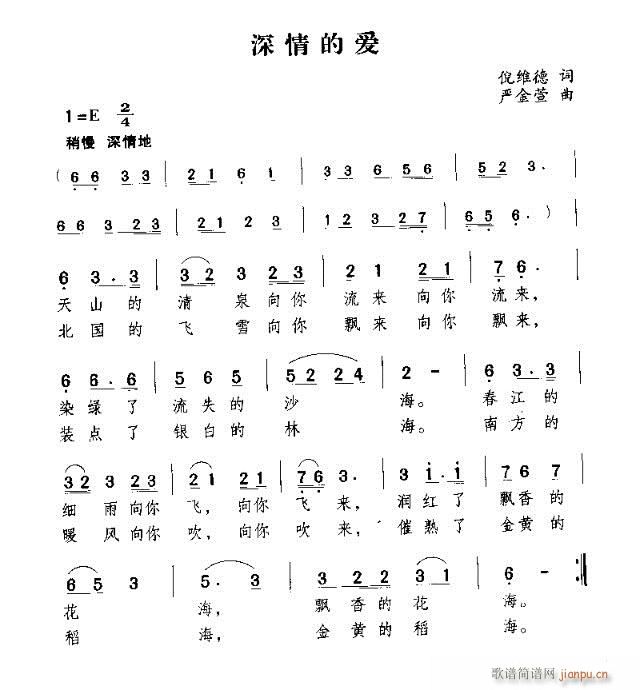 深情的爱
倪维德 词
严金萱 曲
1=E 2/4
稍慢 深情地
( 6 6 3 3 | 2 1 6 1 | 3 3 6 5 6 | 5 2 3 · |
6 6 3 2 3 | 2 2 1 2 3 | 1 2 3 2 7 | 6 5 6 · ) |
6 3 · 3 | 3 2 3 2 3 | 2 1 2 1 | 7 6 · |
天山的清泉向你流来向你流来,
北国的飞雪向你飘来向你飘来,
6 6 · 6 | 5 6 5 6 5 | 5 2 2 4 | 2 - | 6 3 · 3 |
染绿了流失的沙海。春江的
装点了银白的林海。南方的
3 2 3 2 3 | 2 1 2 1 | 7 6 3 · | 3 1 · 1 | 7 6 7 |
细雨向你飞,向你飞来,润红了飘香的
暖风向你吹,向你吹来,催熟了金黄的
6 5 3 | 5 · 3 | 3 2 2 2 | 3 1 | 6 - :||
花海,飘香的花海。
稻海,金黄的稻海。
歌谱简谱网
jianpu.cn